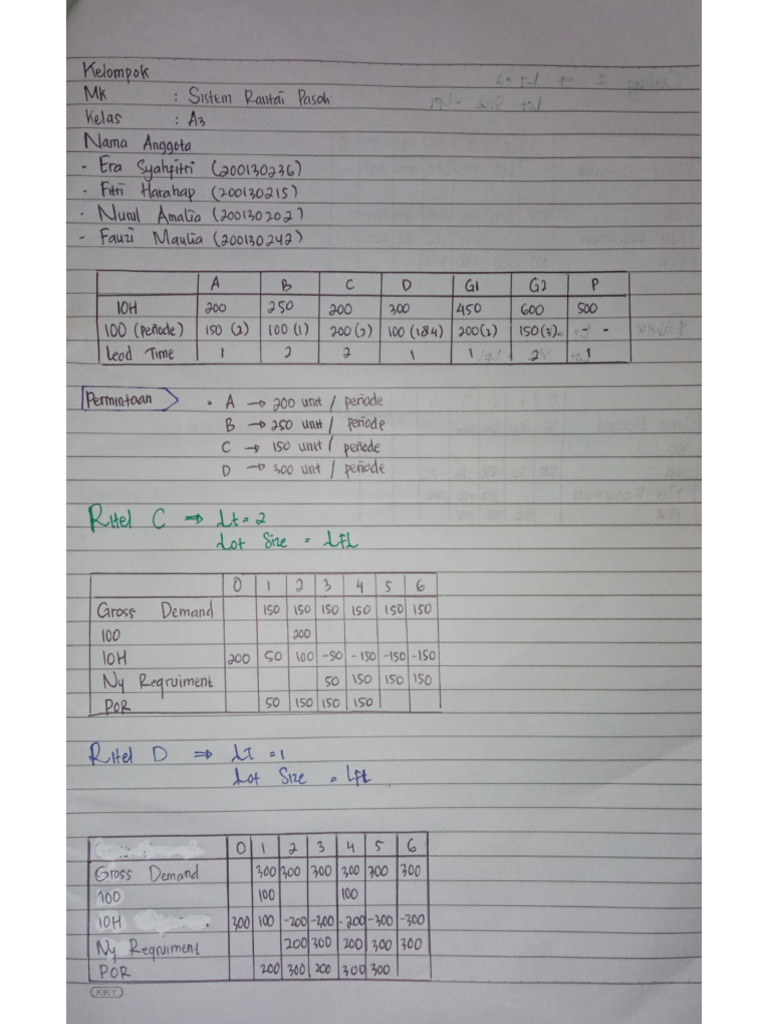 Kelompok
MK : Sistem Rantai Pasok
Kelas : A3
Nama Anggota
- Era Syahfitri (200130236)
- Fitri Harahap (200130215)
- Nurul Amalia (200130202)
- Fauzi Maulia (200130242)
A B C D G1 G2 P
IOH 200 250 200 300 450 600 500
100 (Periode) 150 (2) 100 (1) 200 (2) 100 (1&4) 200 (2) 150 (3) - -
Lead Time 1 2 2 1 1 2 1
Permintaan • A → 200 unit / periode
B → 250 unit / periode
C → 150 unit / periode
D → 300 unit / periode
Ritel C ⇒ Lt = 2
Lot Size = LFL
0 1 2 3 4 5 6
Gross Demand 150 150 150 150 150 150
100 200
IOH 200 50 100 -50 -150 -150 -150
Ny Reqruiment 50 150 150 150
POR 50 150 150 150
Ritel D ⇒ LT = 1
Lot Size = LFL
0 1 2 3 4 5 6
Gross Demand 300 300 300 300 300 300
100 100 100
IOH 300 100 -200 -300 -200 -300 -300
Ny Reqruiment 200 300 200 300 300
POR 200 300 200 300 300
KKY